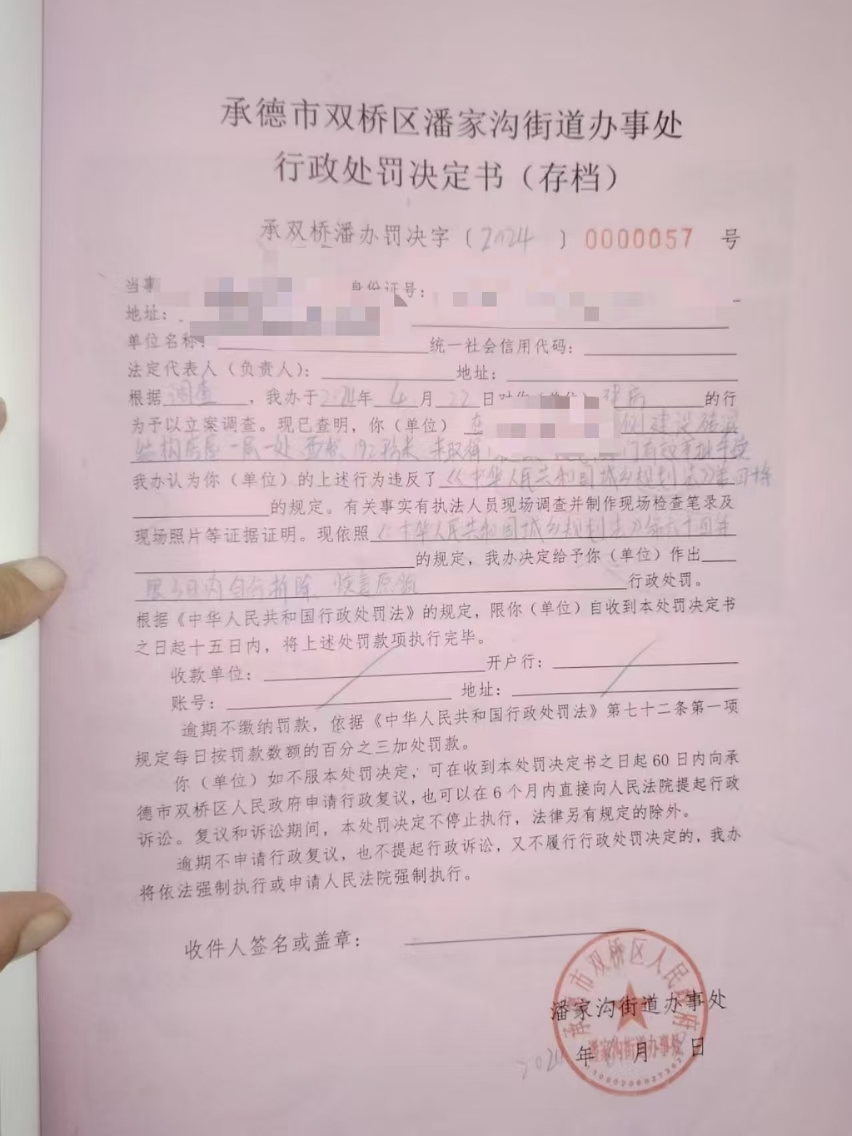 承德市双桥区潘家沟街道办事处
行政处罚决定书（存档）
承双桥潘办罚决字〔2024〕0000057 号
当事 身份证号：
地址：
单位名称： 统一社会信用代码：
法定代表人（负责人）： 地址：
根据 调查 ，我办于 2024 年 4 月 22 日对你（单位） 的行
为予以立案调查。现已查明，你（单位）在 侧建设砖混
结构房屋一层一处 面积 192平米 未取得 门有效审批手续
我办认为你（单位）的上述行为违反了《中华人民共和国城乡规划法》第四十条
的规定。有关事实有执法人员现场调查并制作现场检查笔录及
现场照片等证据证明。现依照《中华人民共和国城乡规划法》第六十四条
的规定，我办决定给予你（单位）作出
日内自行拆除、恢复原貌 行政处罚。
根据《中华人民共和国行政处罚法》的规定，限你（单位）自收到本处罚决定书
之日起十五日内，将上述处罚款项执行完毕。
收款单位： 开户行：
账号： 地址：
逾期不缴纳罚款，依据《中华人民共和国行政处罚法》第七十二条第一项
规定每日按罚款数额的百分之三加处罚款。
你（单位）如不服本处罚决定，可在收到本处罚决定书之日起 60 日内向承
德市双桥区人民政府申请行政复议，也可以在 6 个月内直接向人民法院提起行政
诉讼。复议和诉讼期间，本处罚决定不停止执行，法律另有规定的除外。
逾期不申请行政复议，也不提起行政诉讼，又不履行行政处罚决定的，我办
将依法强制执行或申请人民法院强制执行。
收件人签名或盖章：
承德市双桥区人民政府
潘家沟街道办事处
潘家沟街道办事处
2024 年 月 日